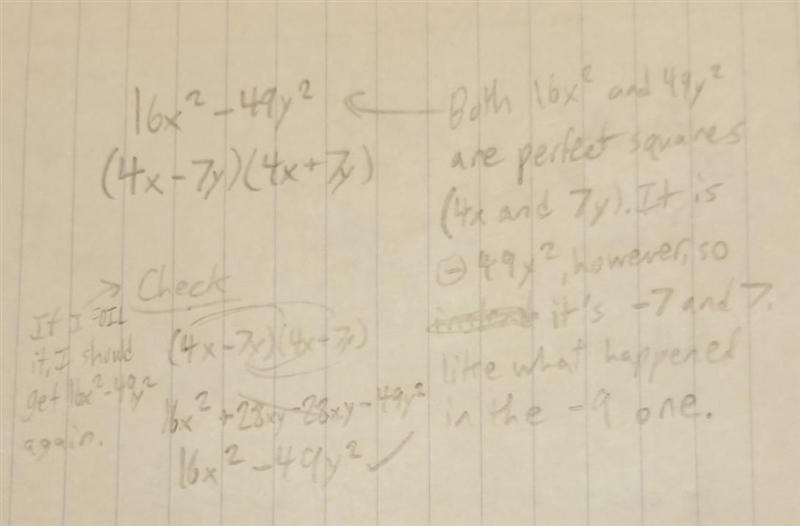 16x² - 49y²
(4x-7y)(4x+7y)
Both 16x² and 49y²
are perfect squares
(4x and 7y). It is
⊖ 49y², however, so
it's -7 and 7.
like what happened
in the -9 one.
→ Check
If I FOIL
it, I should
get 16x²-49y²
again.
(4x-7y)(4x+7y)
16x² +28xy-28xy-49y²
16x² -49y² ✓